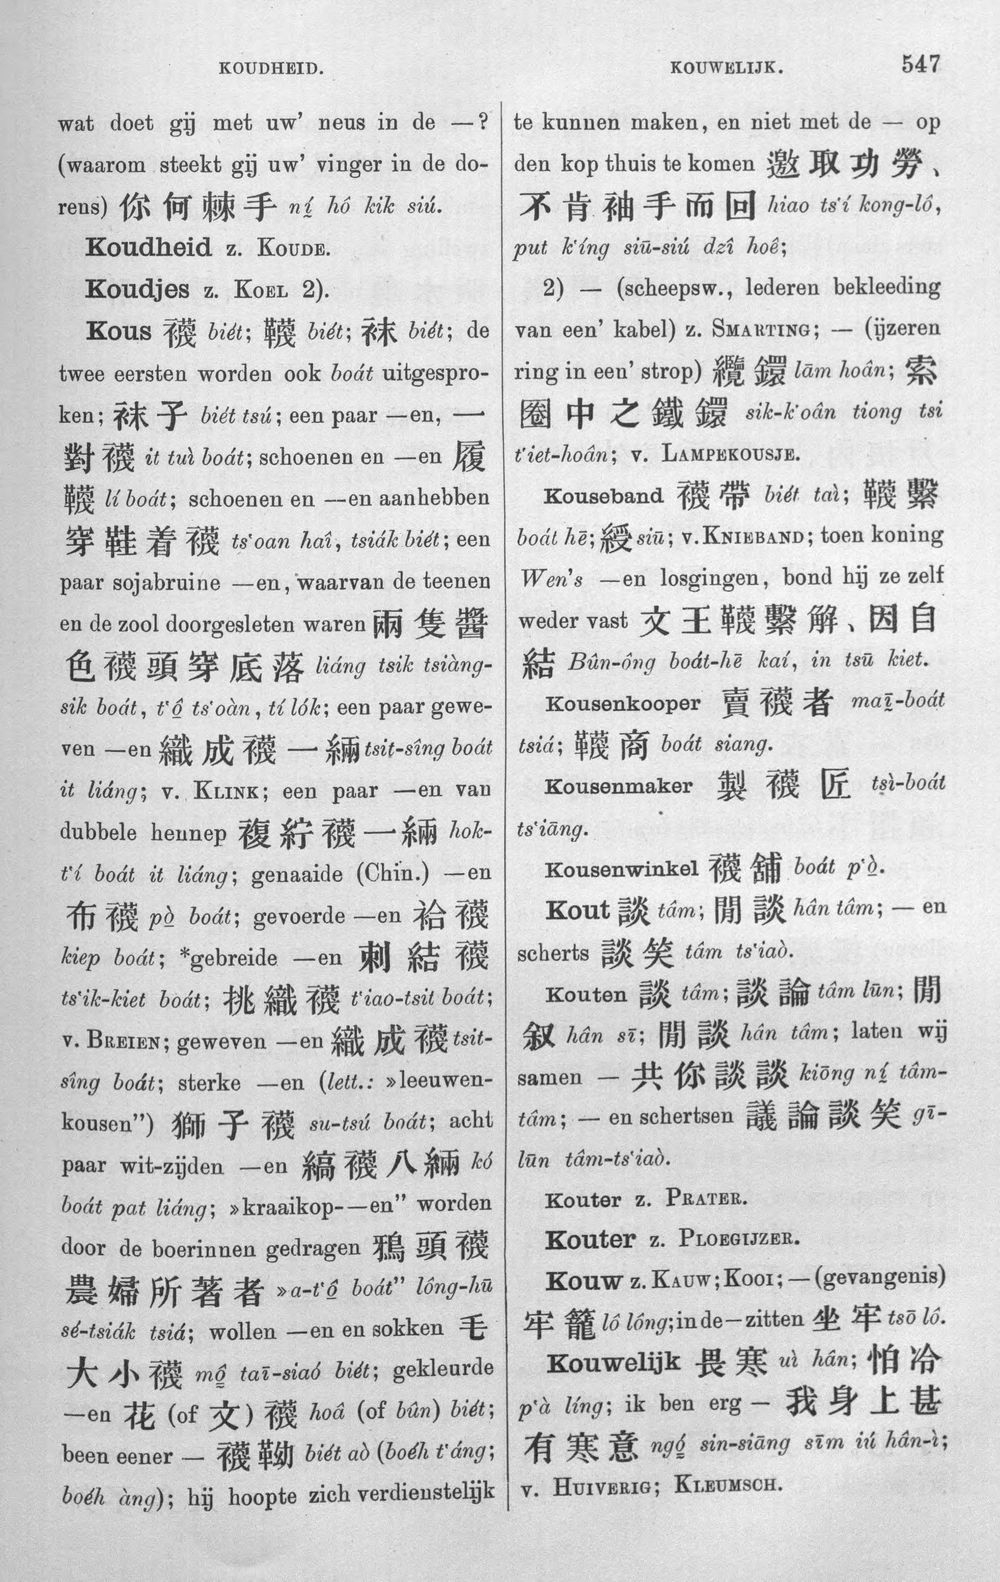 KOUDHEID.
KOUWELIJK.
547
wat doet gij met uw' neus in de —?
(waarom steekt gij uw' vinger in de do-
rens) 你何棘手 ní hô kik siú.
Koudheid z. KOUDE.
Koudjes z. KOEL 2).
Kous 襪 biét; 韈 biét; 袜 biét; de
twee eersten worden ook boát uitgespro-
ken; 袜子 biét tsú; een paar —en, 一
對襪 it tuì boát; schoenen en —en 履
韈 lí boát; schoenen en —en aanhebben
穿鞋着襪 ts‘oan haî, tsiák biét; een
paar sojabruine —en, waarvan de teenen
en de zool doorgesleten waren 兩隻醬
色襪頭穿底落 liáng tsik tsiàng-
sik boát, t‘ô ts‘oàn, tí lók; een paar gewe-
ven —en 織成襪一緉 tsit-sîng boát
it liáng; v. KLINK; een paar —en van
dubbele hennep 複紵襪一緉 hok-
t‘í boát it liáng; genaaide (Chin.) —en
布襪 pò boát; gevoerde —en 袷襪
kiep boát; *gebreide —en 刺結襪
ts‘ik-kiet boát; 挑織襪 t‘iao-tsit boát;
v. BREIEN; geweven —en 織成襪 tsit-
sîng boát; sterke —en (lett.: »leeuwen-
kousen”) 獅子襪 su-tsú boát; acht
paar wit-zijden —en 縞襪八緉 kó
boát pat liáng; »kraaikop-—en” worden
door de boerinnen gedragen 鴉頭襪
農婦所著者 »a-t‘ô boát” lông-hū
sé-tsiák tsiá; wollen —en en sokken 毛
大小襪 mô taī-siaó biét; gekleurde
—en 花 (of 文) 襪 hoâ (of bûn) biét;
been eener — 襪靿 biét aò (boéh t‘áng;
boéh àng); hij hoopte zich verdienstelijk
te kunnen maken, en niet met de — op
den kop thuis te komen 邀取功勞、
不肯袖手而回 hiao ts‘í kong-lô,
put k‘íng siū-siú dzî hoê;
2) — (scheepsw., lederen bekleeding
van een' kabel) z. SMARTING; — (ijzeren
ring in een' strop) 纜鐶 lām hoân; 索
圈中之鐵鐶 sik-k‘oân tiong tsi
t‘iet-hoân; v. LAMPEKOUSJE.
Kouseband 襪帶 biét taì; 韈繫
boát hē; 綬 siū; v. KNIEBAND; toen koning
Wen's —en losgingen, bond hij ze zelf
weder vast 文王韈繫解、因自
結 Bûn-ông boát-hē kaí, in tsū kiet.
Kousenkooper 賣襪者 maī-boát
tsiá; 韈商 boát siang.
Kousenmaker 製襪匠 tsì-boát
ts‘iāng.
Kousenwinkel 襪舖 boát p‘ò.
Kout 談 tâm; 閒談 hân tâm; — en
scherts 談笑 tâm ts‘iaò.
Kouten 談 tâm; 談論 tâm lūn; 閒
叙 hân sī; 閒談 hân tâm; laten wij
samen — 共你談談 kiōng ní tâm-
tâm; — en schertsen 議論談笑 gī-
lūn tâm-ts‘iaò.
Kouter z. PRATER.
Kouter z. PLOEGIJZER.
Kouw z. KAUW; KOOI; — (gevangenis)
牢籠 lô lông; in de — zitten 坐牢 tsō lô.
Kouwelijk 畏寒 uì hân; 怕冷
p‘à líng; ik ben erg — 我身上甚
有寒意 ngó sin-siāng sīm iú hân-ì;
v. HUIVERIG; KLEUMSCH.